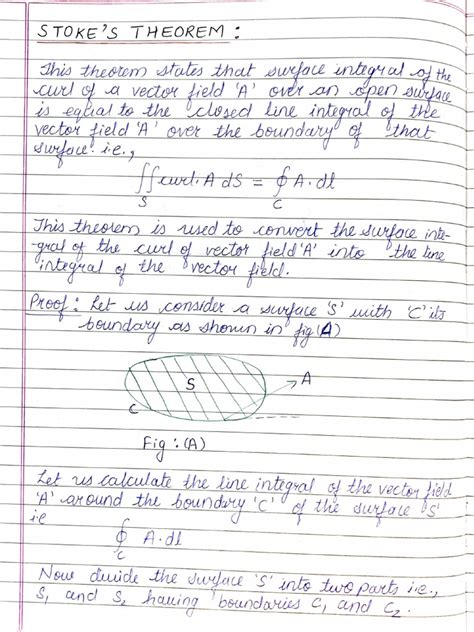 STOKE'S THEOREM :
This theorem states that surface integral of the
curl of a vector field 'A' over an open surface
is equal to the closed line integral of the
vector field 'A' over the boundary of that
surface i.e.,
∬ curl. A dS = ∮ A. dl
S C
This theorem is used to convert the surface inte-
gral of the curl of vector field 'A' into the line
integral of the vector field.
Proof : Let us consider a surface 'S' with 'C' its
boundary as shown in fig (A)
S
A
C
Fig : (A)
Let us calculate the line integral of the vector field
'A' around the boundary 'C' of the surface 'S'
i.e
∮ A. dl
C
Now divide the surface 'S' into two parts i.e.,
S₁ and S₂ having boundaries C₁ and C₂.